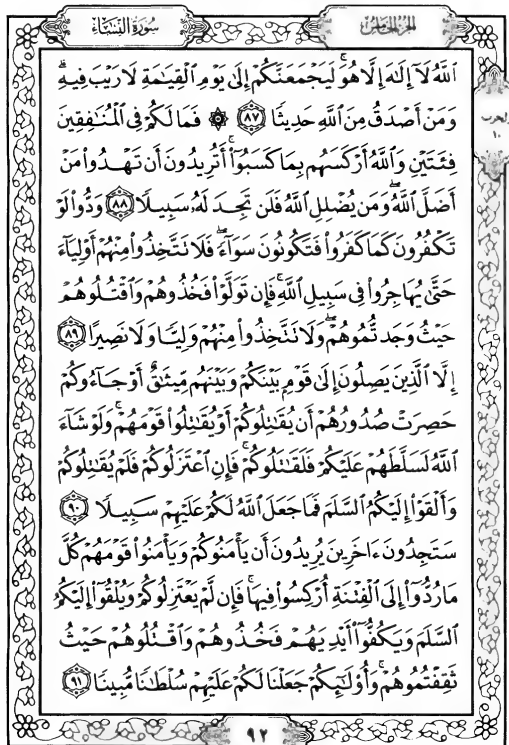 سُورَةُ النِّسَاءِ
الجزء الخامس
اللَّهُ لَآ إِلَٰهَ إِلَّا هُوَ ۚ لَيَجْمَعَنَّكُمْ إِلَىٰ يَوْمِ الْقِيَٰمَةِ لَا رَيْبَ فِيهِ ۗ
وَمَنْ أَصْدَقُ مِنَ اللَّهِ حَدِيثًا ﴿٨٧﴾ ۞ فَمَا لَكُمْ فِي الْمُنَٰفِقِينَ
فِئَتَيْنِ وَاللَّهُ أَرْكَسَهُم بِمَا كَسَبُوٓا۟ ۚ أَتُرِيدُونَ أَن تَهْدُوا۟ مَنْ
أَضَلَّ اللَّهُ ۖ وَمَن يُضْلِلِ اللَّهُ فَلَن تَجِدَ لَهُۥ سَبِيلًا ﴿٨٨﴾ وَدُّوا۟ لَوْ
تَكْفُرُونَ كَمَا كَفَرُوا۟ فَتَكُونُونَ سَوَآءً ۖ فَلَا تَتَّخِذُوا۟ مِنْهُمْ أَوْلِيَآءَ
حَتَّىٰ يُهَاجِرُوا۟ فِي سَبِيلِ اللَّهِ ۚ فَإِن تَوَلَّوْا۟ فَخُذُوهُمْ وَاقْتُلُوهُمْ
حَيْثُ وَجَدتُّمُوهُمْ ۖ وَلَا تَتَّخِذُوا۟ مِنْهُمْ وَلِيًّا وَلَا نَصِيرًا ﴿٨٩﴾
إِلَّا الَّذِينَ يَصِلُونَ إِلَىٰ قَوْمٍ بَيْنَكُمْ وَبَيْنَهُم مِّيثَٰقٌ أَوْ جَآءُوكُمْ
حَصِرَتْ صُدُورُهُمْ أَن يُقَٰتِلُوكُمْ أَوْ يُقَٰتِلُوا۟ قَوْمَهُمْ ۚ وَلَوْ شَآءَ
اللَّهُ لَسَلَّطَهُمْ عَلَيْكُمْ فَلَقَٰتَلُوكُمْ ۚ فَإِنِ اعْتَزَلُوكُمْ فَلَمْ يُقَٰتِلُوكُمْ
وَأَلْقَوْا۟ إِلَيْكُمُ السَّلَمَ فَمَا جَعَلَ اللَّهُ لَكُمْ عَلَيْهِمْ سَبِيلًا ﴿٩٠﴾
سَتَجِدُونَ ءَاخَرِينَ يُرِيدُونَ أَن يَأْمَنُوكُمْ وَيَأْمَنُوا۟ قَوْمَهُمْ كُلَّ
مَا رُدُّوٓا۟ إِلَى الْفِتْنَةِ أُرْكِسُوا۟ فِيهَا ۚ فَإِن لَّمْ يَعْتَزِلُوكُمْ وَيُلْقُوٓا۟ إِلَيْكُمُ
السَّلَمَ وَيَكُفُّوٓا۟ أَيْدِيَهُمْ فَخُذُوهُمْ وَاقْتُلُوهُمْ حَيْثُ
ثَقِفْتُمُوهُمْ ۚ وَأُو۟لَٰٓئِكُمْ جَعَلْنَا لَكُمْ عَلَيْهِمْ سُلْطَٰنًا مُّبِينًا ﴿٩١﴾
٩٢